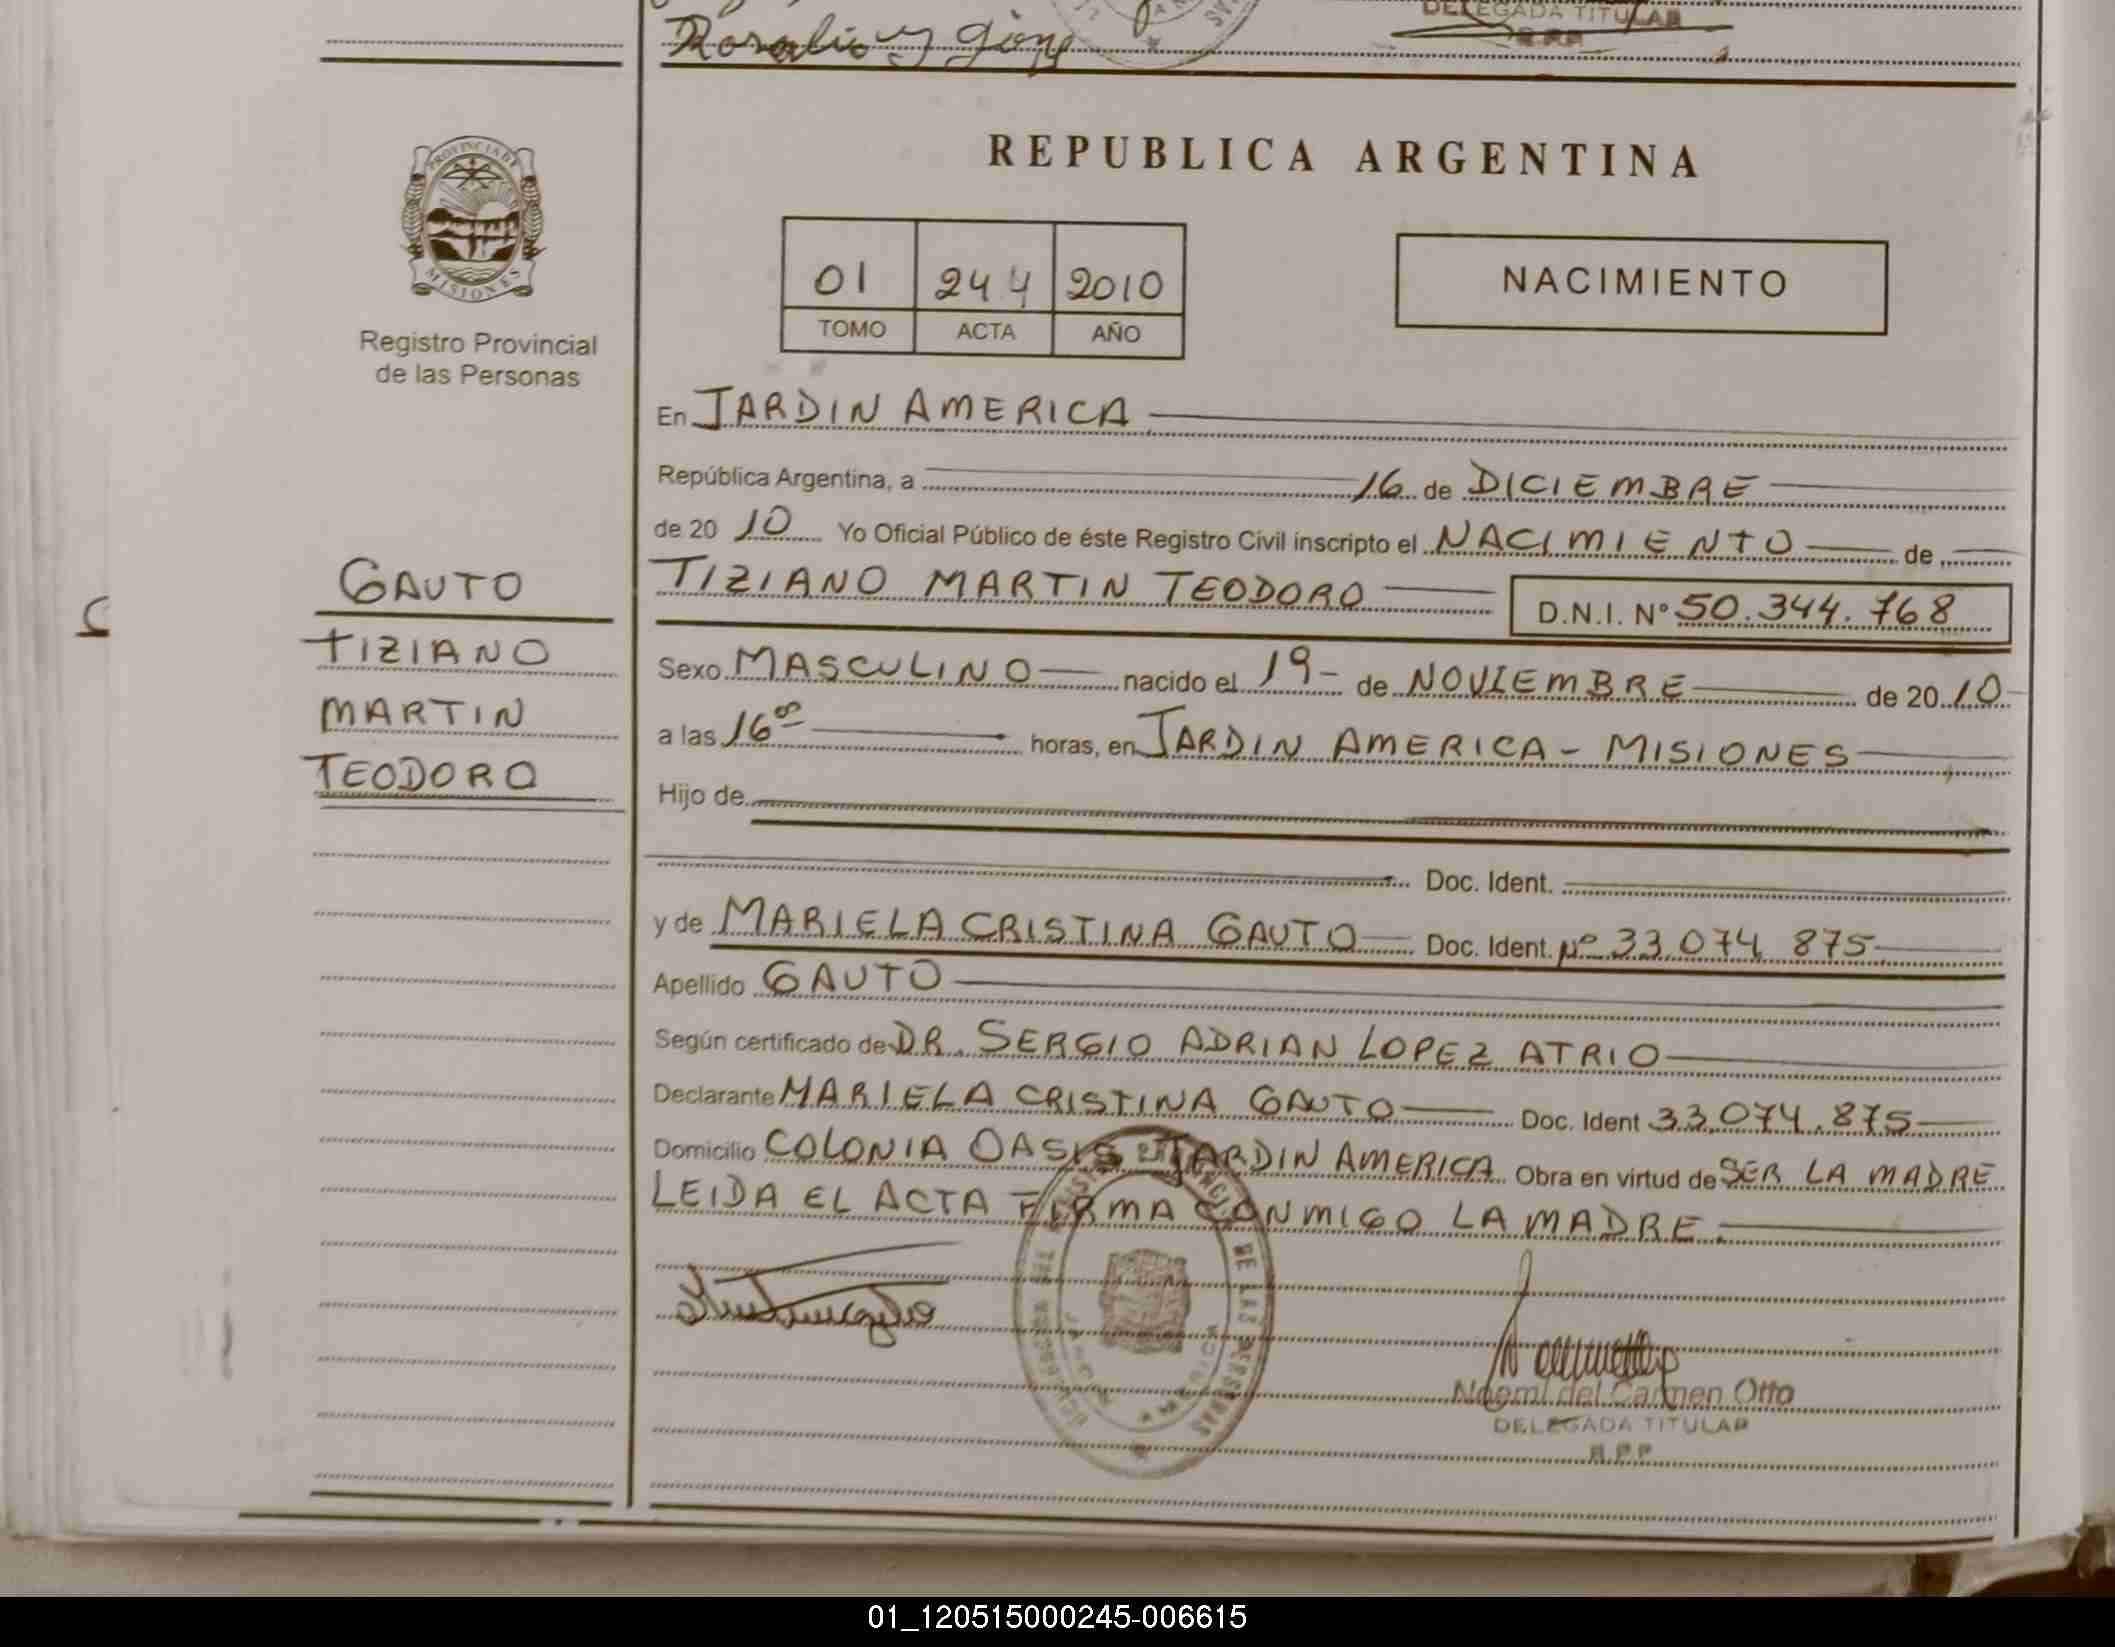 DELEGADA TITULAR
R.P.P.
PROVINCIA DE
MISIONES
Registro Provincial
de las Personas
GAUTO
TIZIANO
MARTIN
TEODORO
REPUBLICA ARGENTINA
01 244 2010
TOMO ACTA AÑO
NACIMIENTO
En JARDIN AMERICA
República Argentina, a 16 de DICIEMBRE
de 20 10 Yo Oficial Público de éste Registro Civil inscripto el NACIMIENTO de
TIZIANO MARTIN TEODORO D.N.I. Nº 50.344.768
Sexo MASCULINO nacido el 19 - de NOVIEMBRE de 20 10
a las 16 00 horas, en JARDIN AMERICA - MISIONES
Hijo de
Doc. Ident.
y de MARIELA CRISTINA GAUTO Doc. Ident. Nº 33.074.875
Apellido GAUTO
Según certificado de DR. SERGIO ADRIAN LOPEZ ATRIO
Declarante MARIELA CRISTINA GAUTO Doc. Ident 33.074.875
Domicilio COLONIA OASIS JARDIN AMERICA Obra en virtud de SER LA MADRE
LEIDA EL ACTA FIRMA CONMIGO LA MADRE.
Noemi del Carmen Otto
DELEGADA TITULAR
R.P.P.
01_120515000245-006615